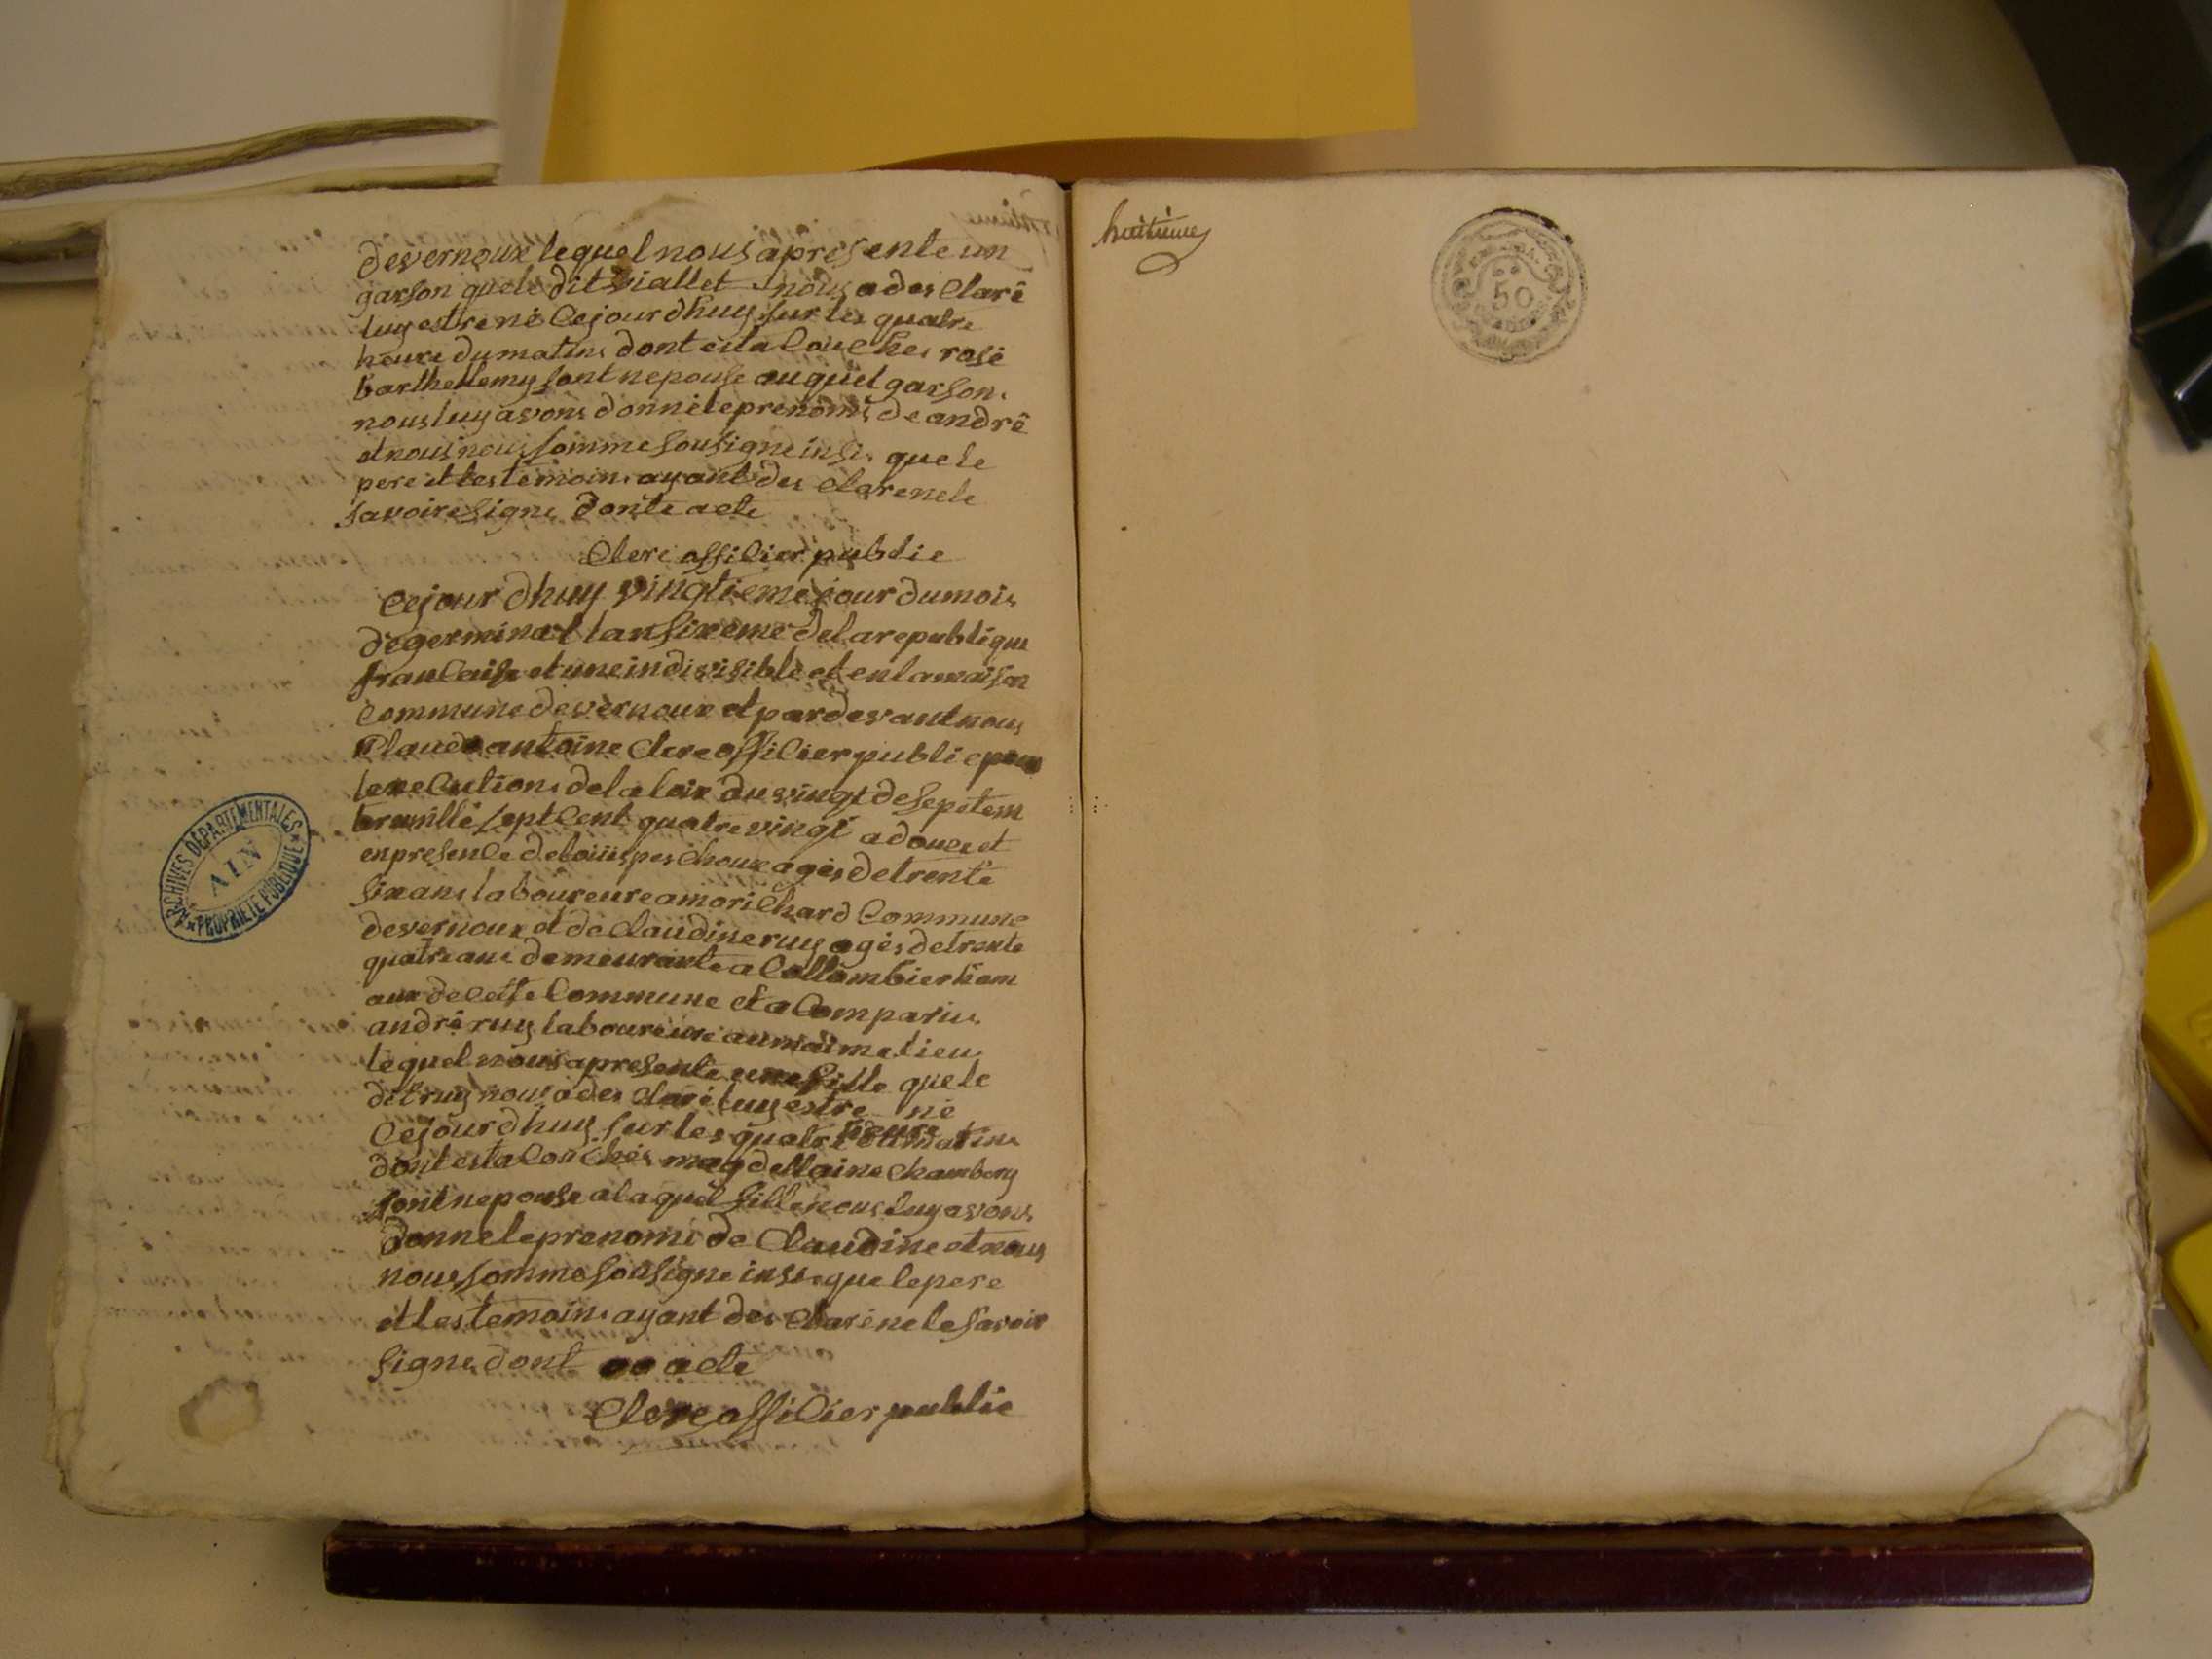 devernoux lequel nous apresente un
garson que le dit Viallet nous a des Claré
luy estre né Cejourdhuy sur les quatre
heure du matin dont est a Couches rose
barthellemy sont nepouse auquel garson
nous luy avons donné le prenoms de andré
et nous nous somme sousigne insi que le
pere et les temoins ayant des Clare ne le
savoire signe dont acte
Clerc offiCier public
Cejour dhuy vingtieme jour du mois
de germinal lan sixeme de la republique
franCaise et une indivisible et en la maison
Commune de vernoux et par devant nous
Claude antoine Clerc offiCier public pour
lexeCution de la loix du vingt de septem
bre mille sept Cent quatre vingt a douce et
en presenCe de loüis pes Choux ages de trente
six ans laboureure a morichard Commune
de vernoux et de Claudine ruy ages de trente
quatre ans demeurante a Collombier ham
aux de cette Commune et a Comparus
andré ruy laboureure au maime lieu
lequel nous apresente une fille que le
dit ruy nous a des Claré luy estre né
Cejourdhuy sur les quatre heure du matin
dont est a Couches magdellaine Chambery
sont nepouse a laquel fille nous luy avons
donne le prenoms de Claudine et nous
nous somme sousigne insi que le pere
et les temoins ayant des Clare ne le savoir
signe dont acte
Clerc offiCier public
ARCHIVES DÉPARTEMENTALES
AIN
PROPRIÉTÉ PUBLIQUE
huitieme
50